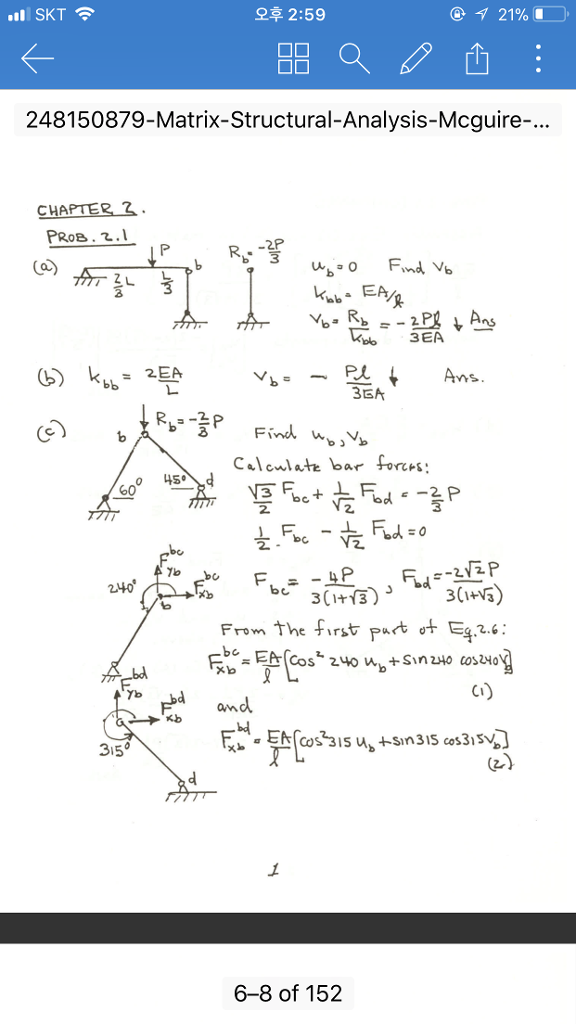 SKT 오후 2:59 21%
248150879-Matrix-Structural-Analysis-Mcguire-...
CHAPTER 2.
PROB. 2.1
(a)
P
b
2/3 L
L/3
R_b = -2P/3
u_b = 0 Find v_b
k_bb = EA/ℓ
v_b = R_b/k_bb = - 2Pℓ/3EA ↓ Ans
(b) k_bb = 2EA/L v_b = - Pℓ/3EA ↓ Ans.
(c)
R_b = -2/3 P
b
60° 45° d
Find u_b, v_b
Calculate bar forces:
√3/2 F_bc + 1/√2 F_bd = -2/3 P
1/2 F_bc - 1/√2 F_bd = 0
F_bc = -4P/3(1+√3) , F_bd = -2√2 P/3(1+√3)
240°
F_yb^bc
F_xb^bc
b
From the first part of Eq. 2.6:
F_xb^bc = EA/ℓ [cos² 240 u_b + sin 240 cos 240 v_b]
(1)
and
F_xb^bd = EA/ℓ [cos² 315 u_b + sin 315 cos 315 v_b]
(2)
F_yb^bd
F_xb^bd
315°
d
1
6–8 of 152